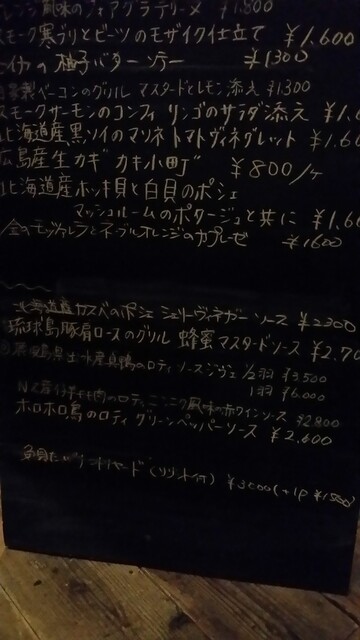 オレンジ風味のフォアグラテリーヌ ¥1.800
スモーク寒ブリとビーツのモザイク仕立て ¥1.600
イカの柚子バターソテー ¥1300
自家製ベーコンのグリル マスタードとレモン添え ¥1300
スモークサーモンのコンフィ リンゴのサラダ添え ¥1.
北海道産黒ソイのマリネ トマトヴィネグレット ¥1.60
広島産生カキ"カキ小町" ¥800/ヶ
北海道産ホッキ貝と白貝のポシェ
マッシュルームのポタージュと共に ¥1.60
モッツァレラとネーブルオレンジのカプレーゼ ¥1600
北海道産カスベのポシェ シェリーヴィネガーソース ¥2300
琉球島豚肩ロースのグリル 蜂蜜マスタードソース ¥2.70
のロティ ソースジヴェ 1/2羽 ¥3.500
1羽 ¥6.000
NZ産仔羊のロティ ニンニク風味の赤ワインソース ¥2.800
ホロホロ鳥のロティ グリーンペッパーソース ¥2.600
(リゾット付) ¥3500